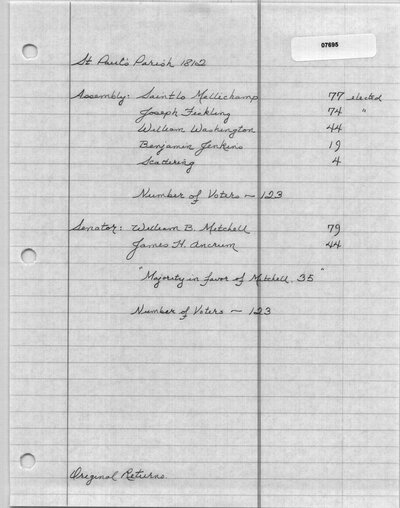 07695
St Paul's Parish 1812
Assembly: Saintlo Mellichamp 77 elected
Joseph Fickling 74 "
William Washington 44
Benjamin Jenkins 19
Scatering 4
Number of Voters - 123
Senator: William B. Mitchell 79
James H. Ancrum 44
"Majority in favor of Mitchell 35"
Number of Voters - 123
Original Returns.